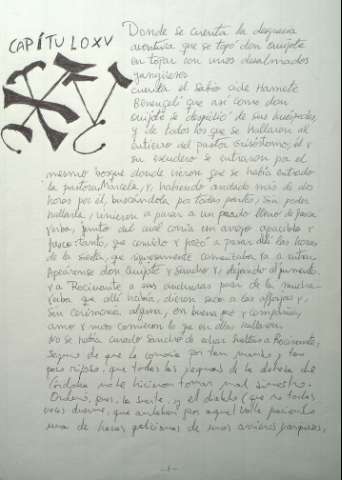 CAPÍTULO XV
Donde se cuenta la desgracia
aventura que se topó don Quijote
en topar con unos desalmados
yangüeses
Cuenta el sabio Cide Hamete
Benengeli que así como don
Quijote se despidió de sus huéspedes
y de todos los que se hallaron al
entierro del pastor Grisóstomo, él y
su escudero se entraron por el
mesmo bosque donde vieron que se había entrado
la pastora Marcela, y, habiendo andado más de dos
horas por él, buscándola por todas partes, sin poder
hallarla, vinieron a parar a un prado lleno de fresca
yerba, junto del cual corría un arroyo apacible y
fresco: tanto, que convidó y forzó a pasar allí las horas
de la siesta, que rigurosamente comenzaba ya a entrar.
Apeáronse don Quijote y Sancho y, dejando al jumento
y a Rocinante a sus anchuras pacer de la mucha
yerba que allí había, dieron saco a las alforjas y,
sin ceremonia alguna, en buena paz y compañía,
amo y mozo comieron lo que en ellas hallaron.
No se había curado Sancho de echar sueltas a Rocinante,
seguro de que le conocía por tan manso y tan
poco rijoso, que todas las yeguas de la dehesa de
Córdoba no le hicieran tomar mal siniestro.
Ordenó, pues, la suerte, y el diablo (que no todas
veces duerme, que andaban por aquel valle paciendo
una de hacas galicianas de unos arrieros yangüeses,
-1-